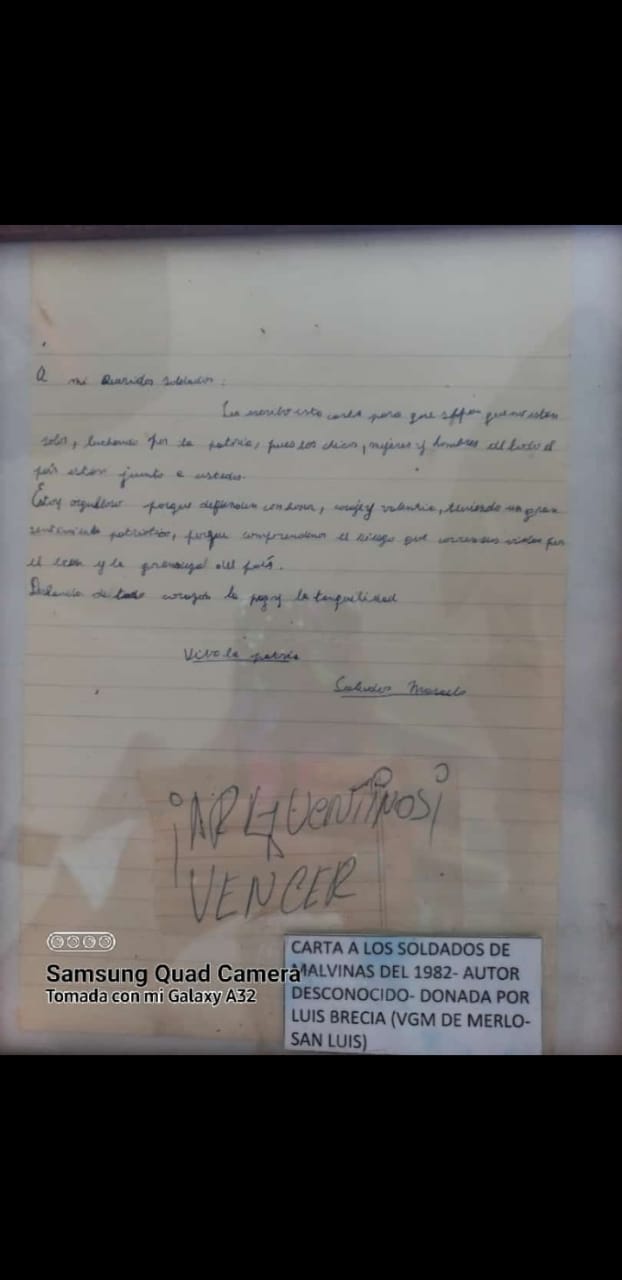 A mi Queridos soldados:
Les escribo esta carta para que sepan que no estan
solos, luchando por la patria, pues los chicos, mujeres y hombres de todo el
país están junto a ustedes.
Estoy orgulloso porque defienden con honor, coraje y valentia, teniendo un gran
sentimiento patriótico, porque comprendemos el riesgo que corren sus vidas por
el bien y la del país.
Deseando de todo corazón la paz y la tanquilidad
Viva la patria
Saludos Marcelo
¡ARGUENTINOS¡
A
VENCER
Samsung Quad Camera
Tomada con mi Galaxy A32
CARTA A LOS SOLDADOS DE
MALVINAS DEL 1982- AUTOR
DESCONOCIDO- DONADA POR
LUIS BRECIA (VGM DE MERLO-
SAN LUIS)